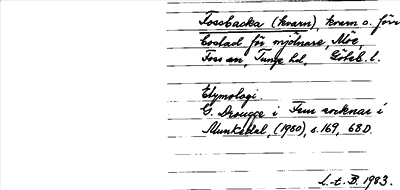 Fossbacka (kvarn), kvarn o. förr
bostad för mjölnare, Möe,
Foss sn, Tunge hd, Göteb. l.
Etymologi.
G. Drougge i Fem socknar i
Munkedal, (1980), s. 169, 68 D.
L.-t. B. 1983.